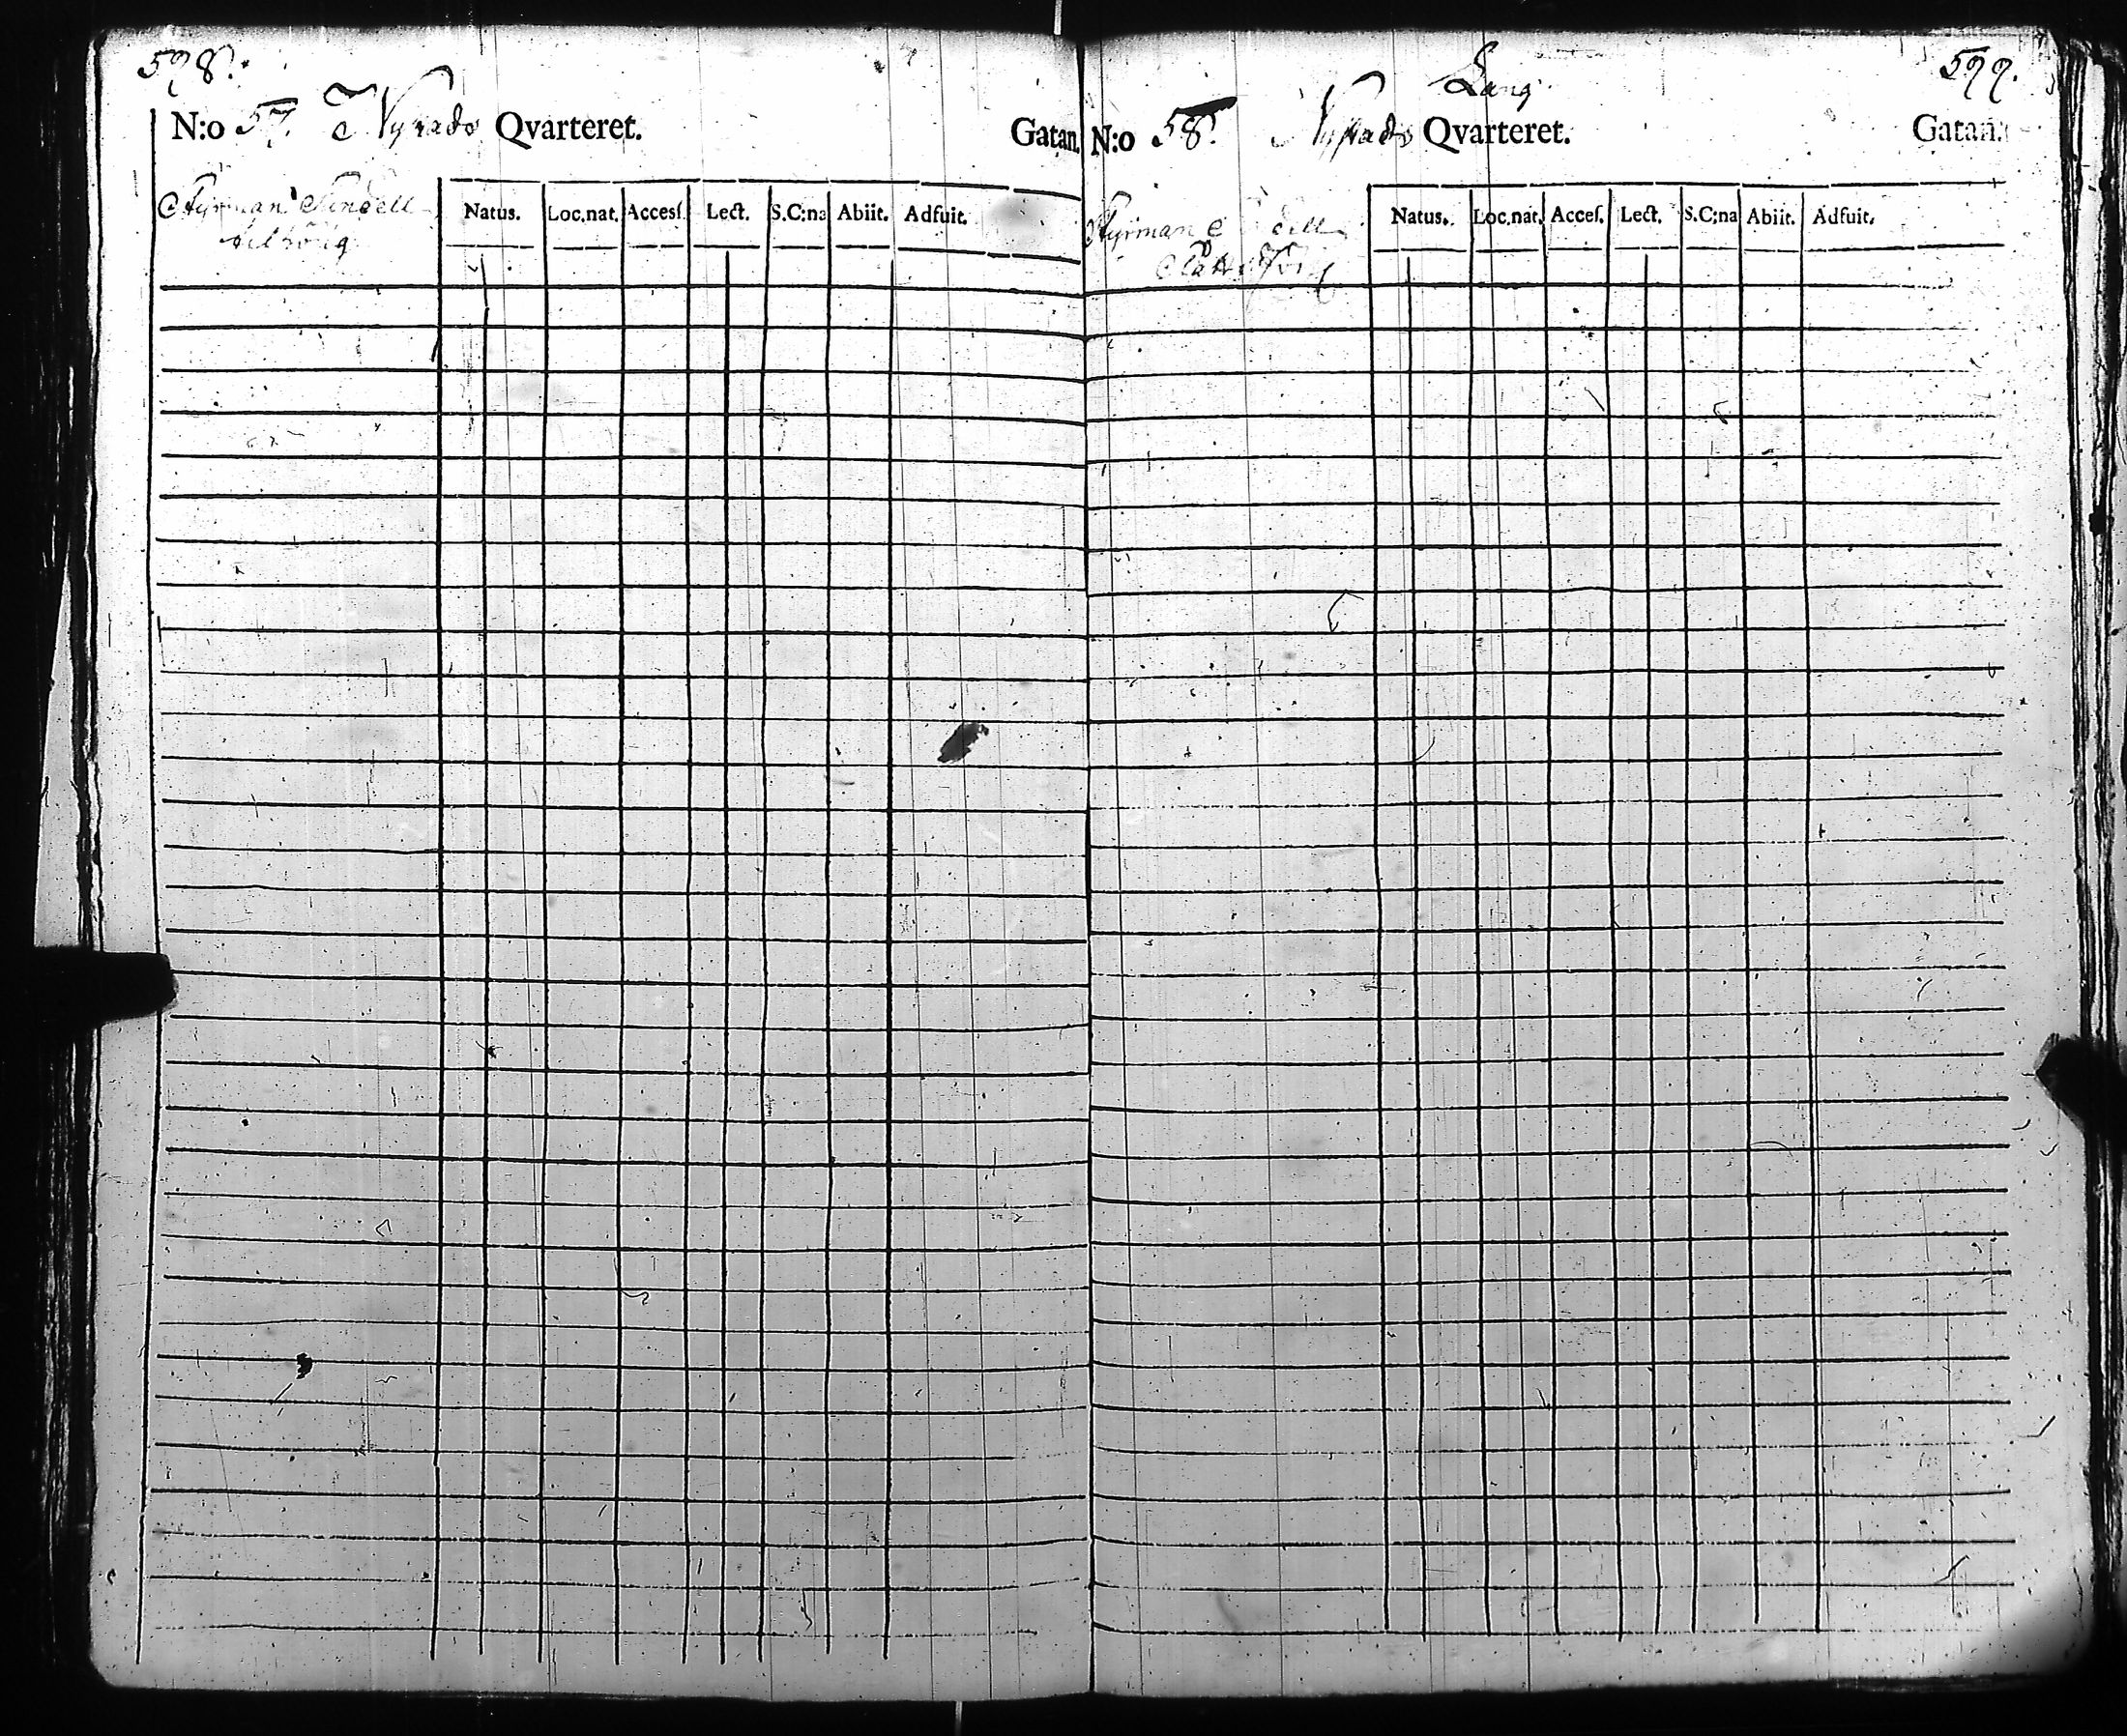 598.
N:o 57. Nystads Qvarteret. Gatan.
Styrman
tilhörig
Natus. Loc.nat. Accesſ. Lect. S.C:na Abiit. Adfuit.
599.
Lang
N:o 58. Nystads Qvarteret. Gatan.
Styrman
Natus. Loc.nat. Acceſ. Lect. S.C:na Abiit. Adfuit.